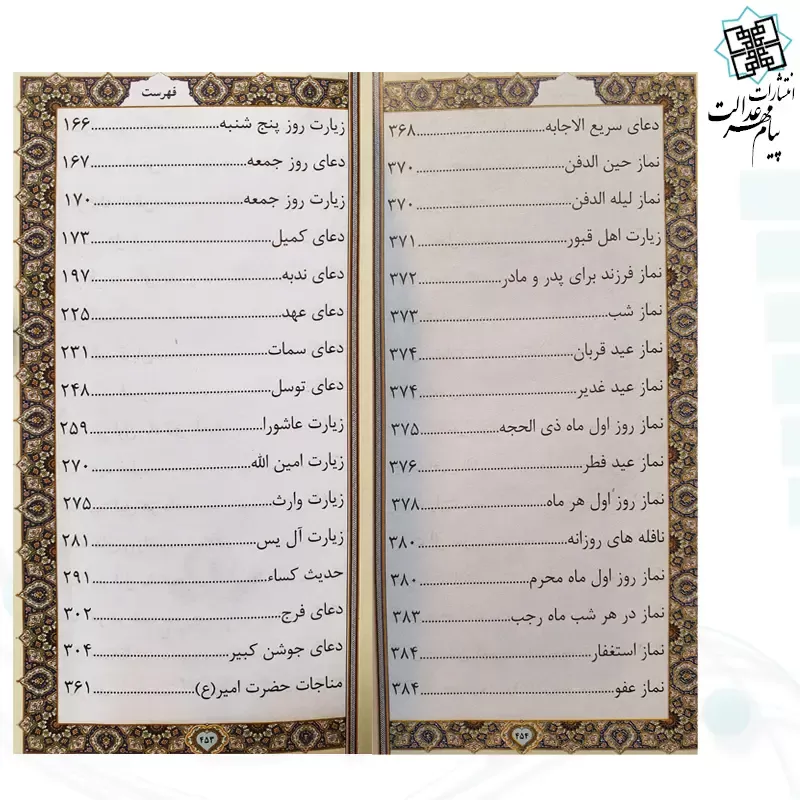 انتشارات
پیام مهر عدالت
فهرست
زیارت روز پنج شنبه................................۱۶۶
دعای روز جمعه................................۱۶۷
زیارت روز جمعه................................۱۷۰
دعای کمیل................................۱۷۳
دعای ندبه................................۱۹۷
دعای عهد................................۲۲۵
دعای سمات................................۲۳۱
دعای توسل................................۲۴۸
زیارت عاشورا................................۲۵۹
زیارت امین الله................................۲۷۰
زیارت وارث................................۲۷۵
زیارت آل یس................................۲۸۱
حدیث کساء................................۲۹۱
دعای فرج................................۳۰۲
دعای جوشن کبیر................................۳۰۴
مناجات حضرت امیر(ع)................................۳۶۱
۴۵۳
دعای سریع الاجابه................................۳۶۸
نماز حین الدفن................................۳۷۰
نماز لیله الدفن................................۳۷۰
زیارت اهل قبور................................۳۷۱
نماز فرزند برای پدر و مادر................................۳۷۲
نماز شب................................۳۷۳
نماز عید قربان................................۳۷۴
نماز عید غدیر................................۳۷۴
نماز روز اول ماه ذی الحجه................................۳۷۵
نماز عید فطر................................۳۷۶
نماز روز اول هر ماه................................۳۷۸
نافله های روزانه................................۳۸۰
نماز روز اول ماه محرم................................۳۸۰
نماز در هر شب ماه رجب................................۳۸۳
نماز استغفار................................۳۸۴
نماز عفو................................۳۸۴
۴۵۴